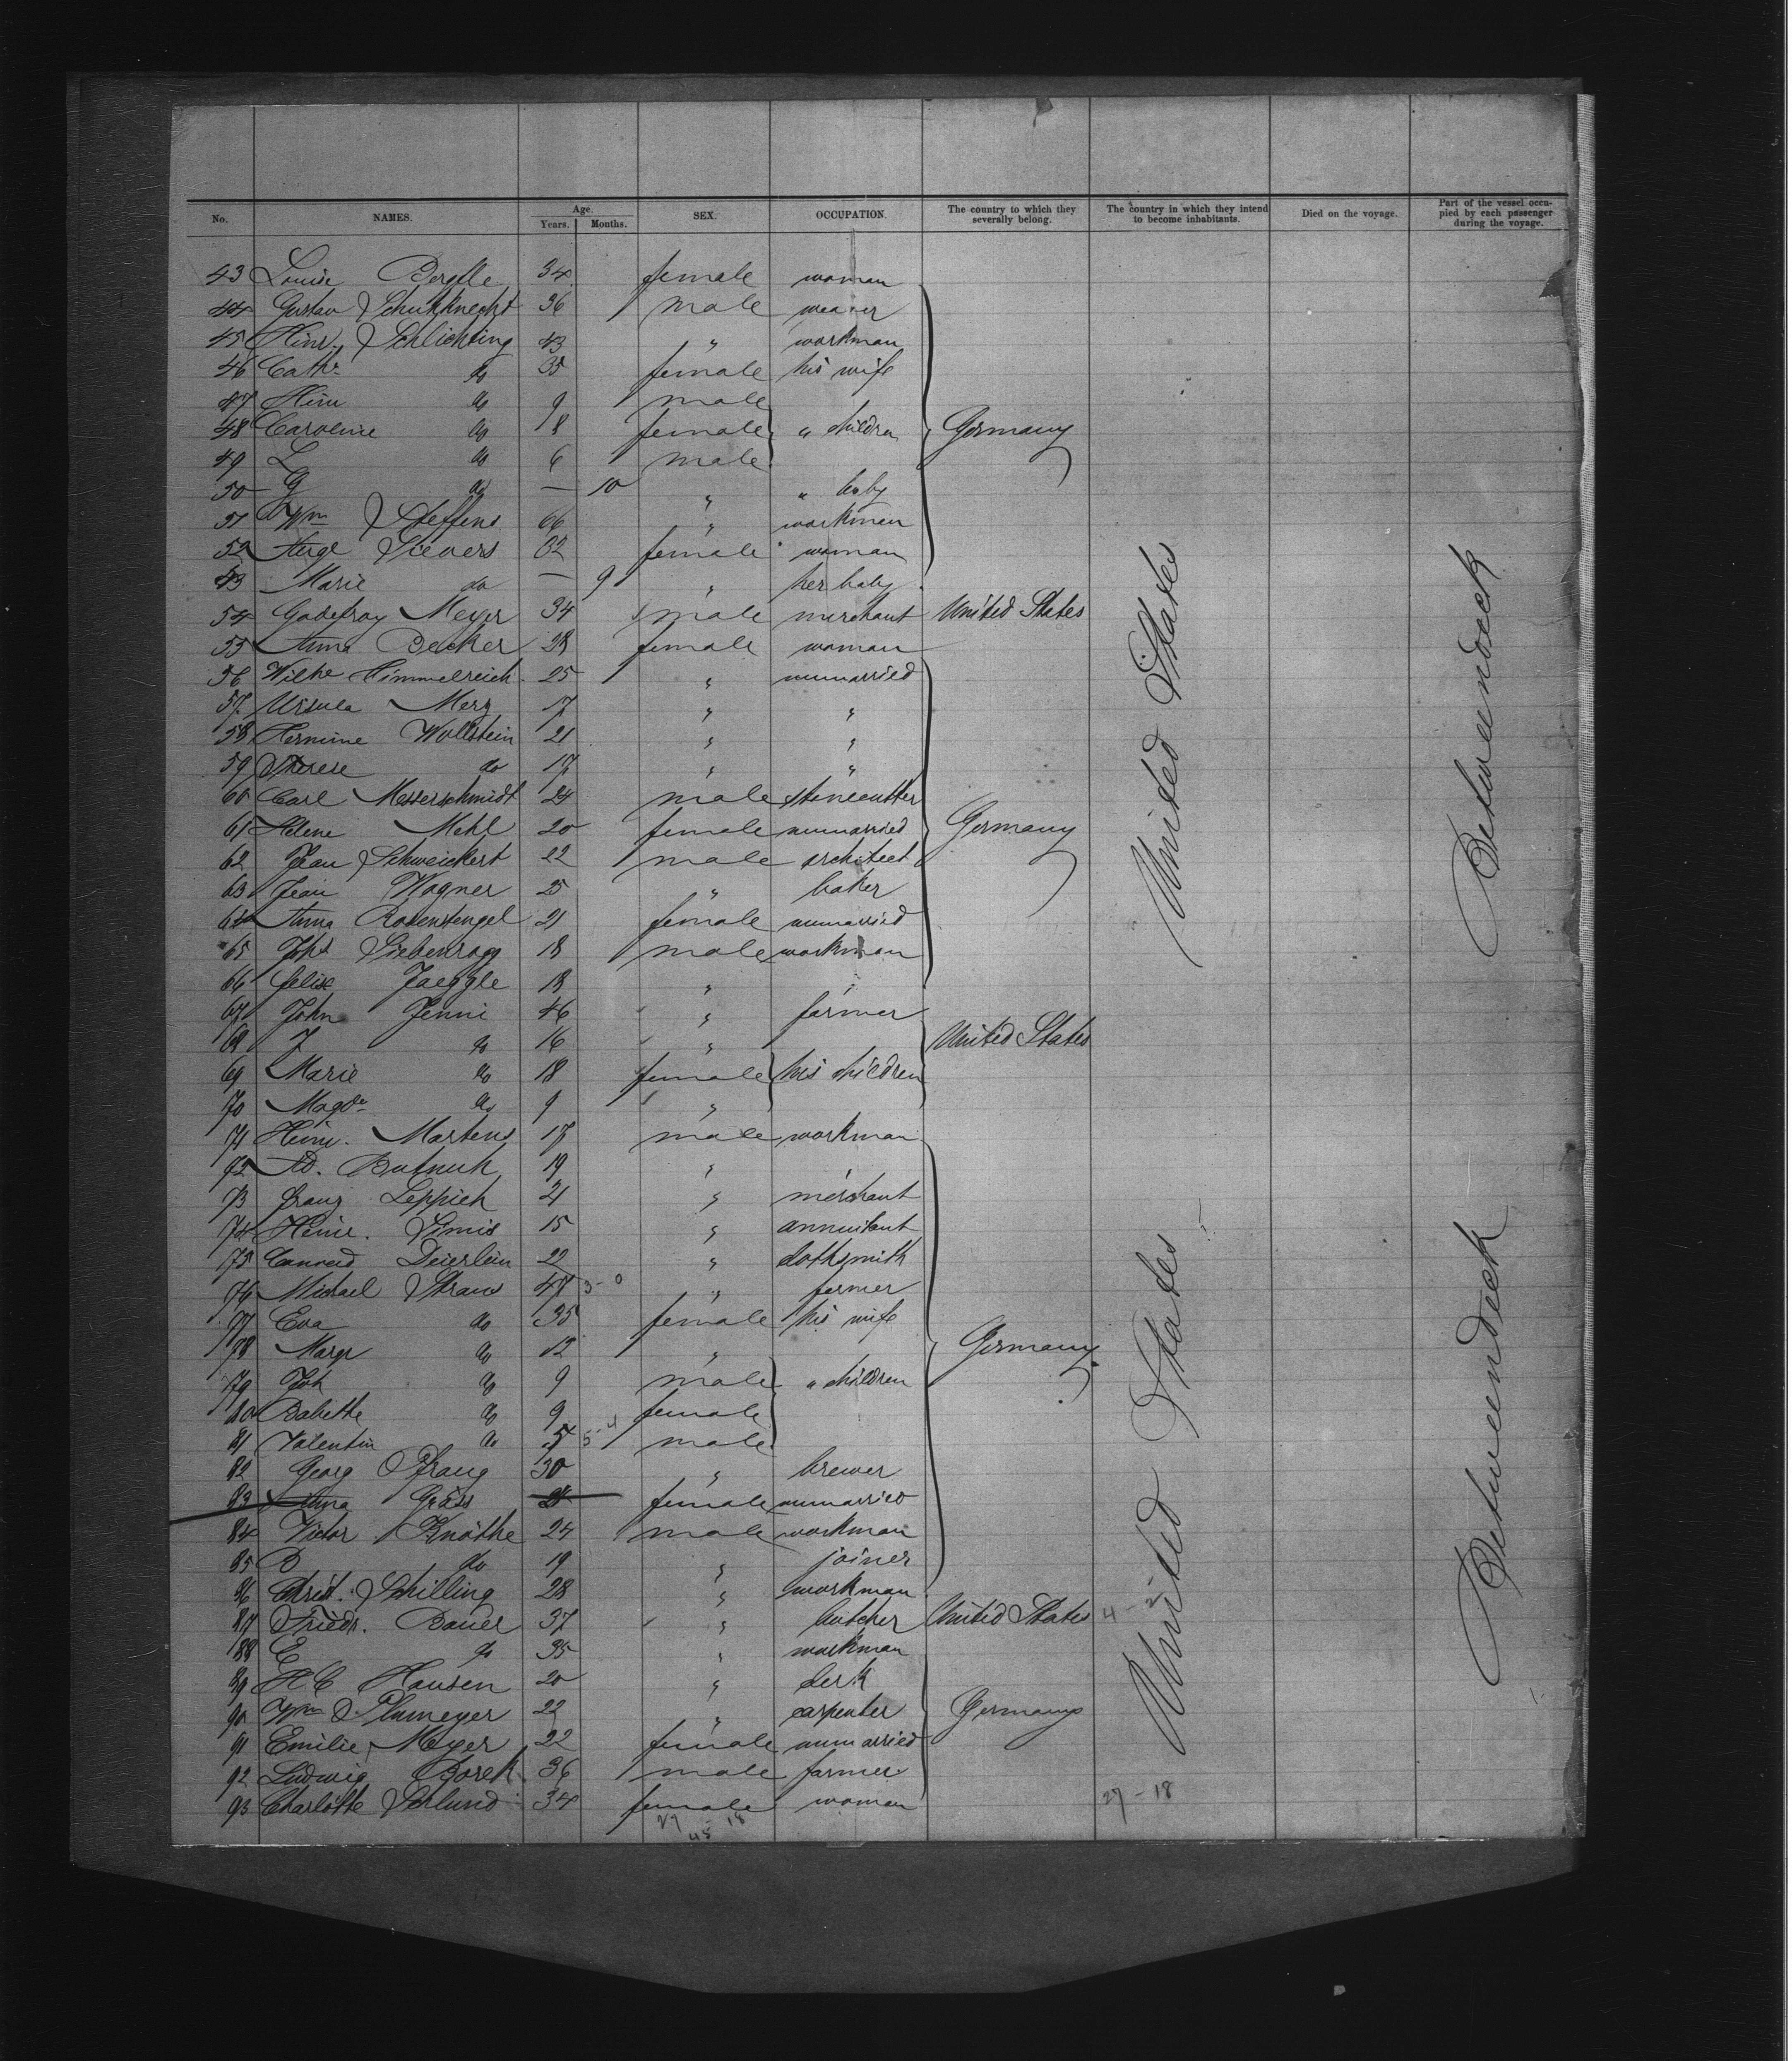 No. NAMES. Age. Years. Months. SEX. OCCUPATION. The country to which they severally belong. The country in which they intend to become inhabitants. Died on the voyage. Part of the vessel occupied by each passenger during the voyage.
43 Louise 34 female woman
44 Gustav Schukknecht 36 male weaver
45 Hinr. Schlichting 43 " workman
46 Cathe do 35 female his wife
47 Hinr do 9 male
48 Caroline do 8 female " children Germany
49 L do 6 male
50 G do — 10 " " baby
51 Wm Steffens 66 " workman
52 Auge Sievers 32 female woman
53 Marie do — 9 " her baby
54 Godefroy Meyer 34 male merchant United States
55 Anna Becker 28 female woman
56 Wilhe Himmelreich 25 " unmarried
57 Ursula Merz 17 " "
58 Hermine Wollstein 21 " "
59 Therese do 17 " "
60 Carl Messerschmidt 24 male stonecutter
61 Helene Mehl 20 female unmarried Germany
62 Jean Schweickert 22 male architect
63 Jean Wagner 25 " baker
64 Anna Rosenstengel 21 female unmarried
65 Johs 18 male workman
66 Felix Jaeggle 18 " "
67 John Jenni 46 " farmer
68 J do 16 " United States
69 Marie do 18 female his children
70 Magde do 9 "
71 Heinr. Martens 17 male workman
72 Ad. 19 " "
73 Franz Leppich 21 " merchant
74 Heinr. 15 " annuitant
75 Conrad Deierlein 22 "
76 Michael Straus 47 " farmer
77 Eva do 35 female his wife
78 Margr do 12 " Germany
79 Joh do 9 male " children
80 Babette do 9 female
81 Valentin do male
82 Georg Pfraug 30 " brewer
83 Anna Gräss female unmarried
84 Victor Knöthe 24 male workman
85 B do 19 " joiner
86 Christ. Schilling 28 " workman
87 Friedr. Bauer 37 " butcher United States
88 E do 35 " workman
89 H C Hansen 20 " clerk
90 Wm Plumeyer 22 " carpenter Germany
91 Emilie Meyer 22 female unmarried
92 Ludwig Borek 36 male farmer
93 Charlotte Schlund 34 female woman
27 - 18
27 18
45
United States
United States
Betweendeck
Betweendeck